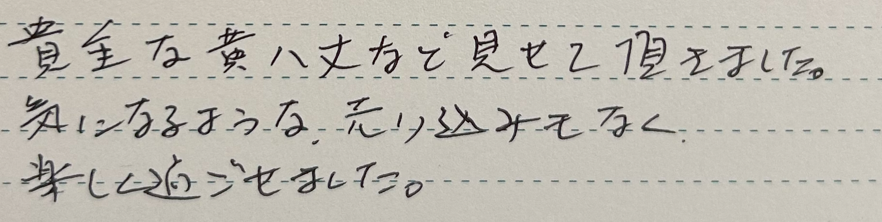 貴重な黄八丈など見せて頂きました。
気になるような、売り込みもなく
楽しく過ごせました。